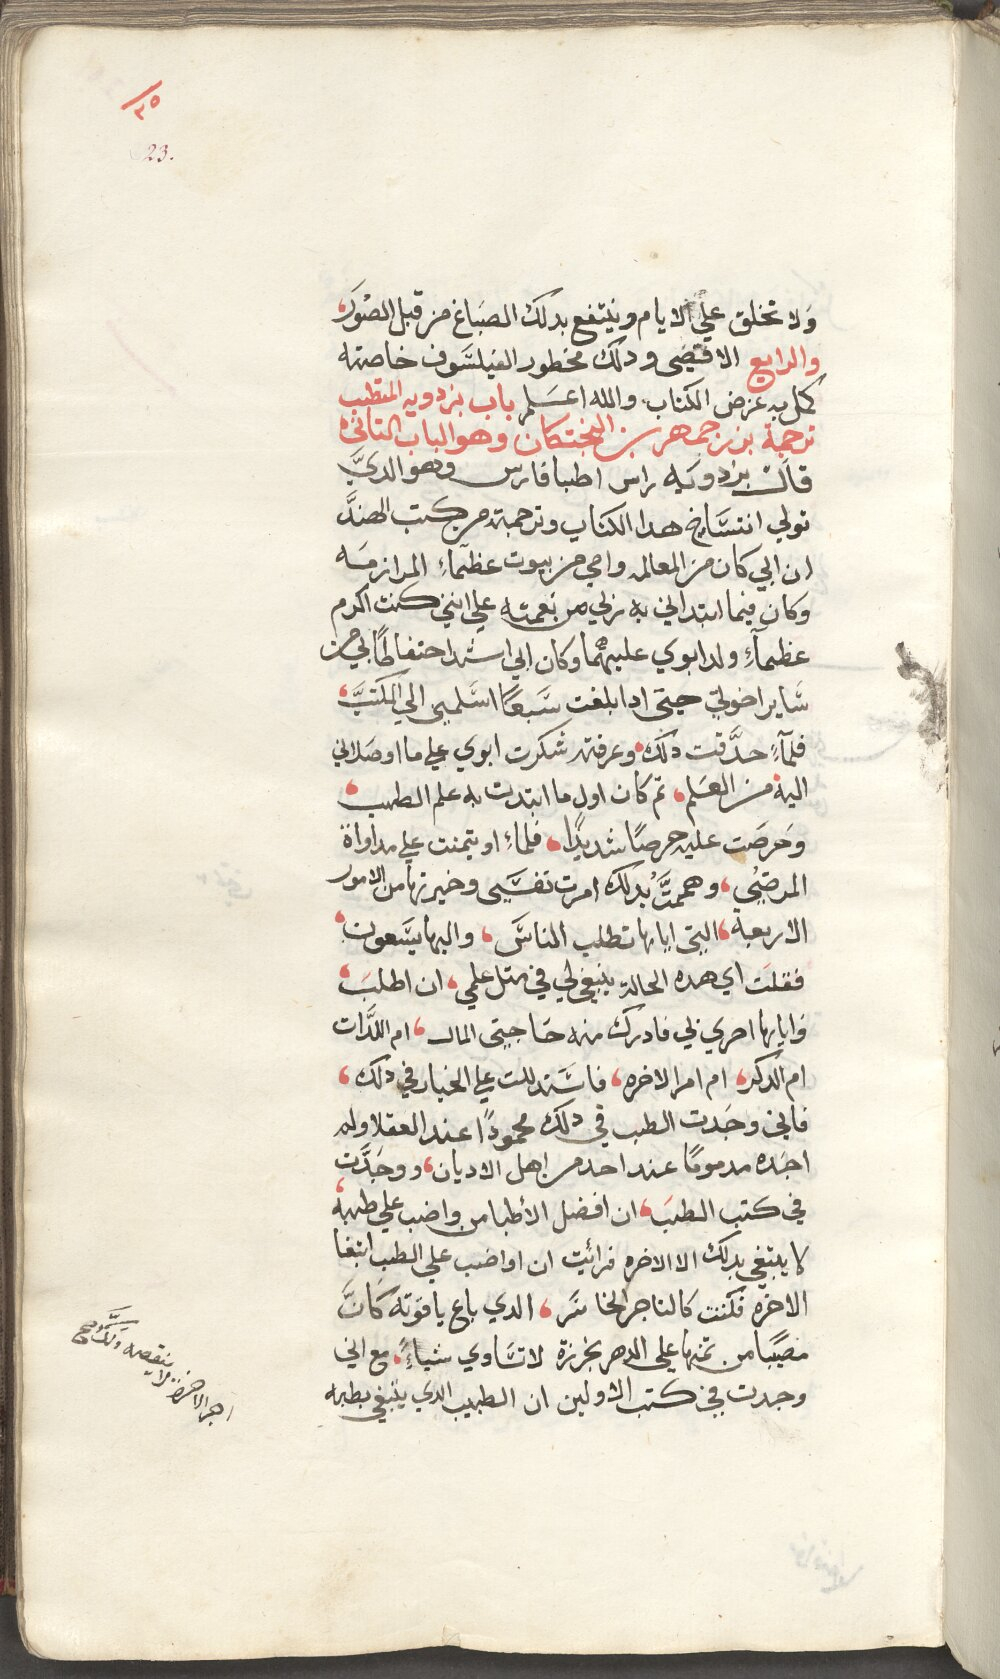 ٢٥
23.
ولا تخلق علي الايام وينتفع بدلك الصباغ من قبل الصور،
والرابع الاقصي ودلك مخطور الفيلسوف خاصته
كمل به غرض الكتاب والله اعلم باب بزدويه المتطبب
ترجمة بزرجمهر بن البختكان وهو الباب الثاني
قال بردويه راس اطبا فارس وهو الدي
تولي انتساخ هدا الكتاب وترجمته من كتب الهند
ان ابي كان من المعالمه وامي من بيوت عظمآء المرازمه
وكان فيما ابتداني به ربي من نعمته علي انني كنت اكرم
عظمآء ولد ابوي عليهما وكان ابي اشد احتفاطا بي من
ساير اخوتي حيتي ادا بلغت سبعا اسلمي الي المكتب،
فلمآء حدقت دلك، وعرفته شكرت ابوي علي ما اوصلاني
اليه من العلم، ثم كان اول ما ابتدت به علم الطب،
وحرصت عليه حرصا شديدا، فلماء اويتمنت علي مداواة
المرضي، وهممت بدلك امرت نفسي وخيرتها من الامور
الاربعة، التي اياها تطلب الناس، واليها يسعون،
فقلت اي هده الحالة ينبغي لي في مثل علمي، ان اطلب،
وايايها احري بي فادرك منه حاجتي المال، ام اللدات
ام الدكر، ام امر الاخره، فاستدللت علي الخيار في دلك،
فاني وجدت الطب في دلك محمودا عند العقلا ولم
اجده مدموما عند احد من اهل الاديان، ووجدت
في كتب الطب، ان افضل الأطبا من واضب علي طبه،
لا يبتغي بدلك الا الاخره فرائيت ان اواضب علي الطب ابتغا
الاخره فكنت كالتاجر الخاسر، الدي باع ياقوته كان
مصيبا من ثمنها علي الدهر بخرزة لا تساوي شياءً، مع اني
وجدت في كتب الاولين ان الطبيب الدي يبتغي بطبه
اجر الاخرة لا ينقصه دلك